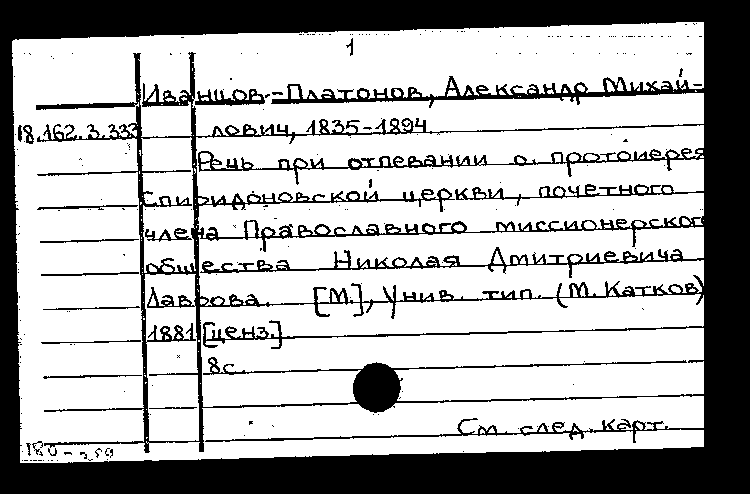 1
Иванцов-Платонов, Александр Михай-
18.162.3.333 лович, 1835-1894.
Речь при отпевании о. протоиерея
Спиридоновской церкви, почетного
члена Православного миссионерского
общества Николая Дмитриевича
Лаврова. [М.], Унив. тип. (М. Катков)
1881 [ценз.].
8с.
См. след. карт.